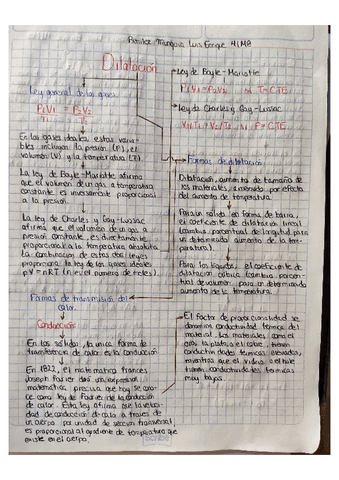 Luis 4IM8
Dilatación
Ley general de los gases
P₁V₁ = P₂V₂
T₁ T₂
En los gases ideales, estas varia-
bles incluyen la presión (P), el
volumen (V) y la temperatura (T).
La ley de Boyle-Mariotte afirma
que el volumen de un gas a temperatura
constante es inversamente proporcional
a la presión.
La ley de Charles y Gay-Lussac
afirma que el volumen de un gas a
presión constante, es directamente
proporcional a la temperatura absoluta
la combinación de estas dos leyes
proporciona la ley de los gases ideales
pV = nRT (n es el numero de moles).
Formas de transmisión del
calor
Conducción
En los sólidos, la unica forma de
transferencia de calor es la conducción
En 1822, el matematico frances
Joseph Fourier dió una expresión
matematica precisa que hoy se cono-
ce como ley de Fourier de la conducción
de calor. Esta ley afirma que la veloci-
dad de conducción de calor a traves de
un cuerpo por unidad de sección transversal,
es proporcional al gradiente de temperatura que
existe en el cuerpo.
Ley de Boyle-Mariotte
P₁V₁ = P₂V₂ si T=CTE
Ley de Charles y Gay-Lussac
V₁/T₁ = V₂/T₂ si P=CTE
Formas de dilatación
Dilatación, aumento de tamaño de
los materiales, a menudo por efecto
del aumento de temperatura.
Para un sólido en forma de barra,
el coeficiente de dilatación lineal
(cambio porcentual de longitud para
un determinado aumento de la tem-
peratura)
Para los líquidos, el coeficiente de
dilatación cúbica (cambio porcen-
tual de volumen para un determinado
aumento de la temperatura.
El factor de proporcionalidad se
denomina conductividad térmica del
material. Los materiales como el
oro, la plata o el cobre, tienen
conductividades térmicas elevadas,
mientras que el vidrio o el
tienen conductividades térmicas
muy bajas.